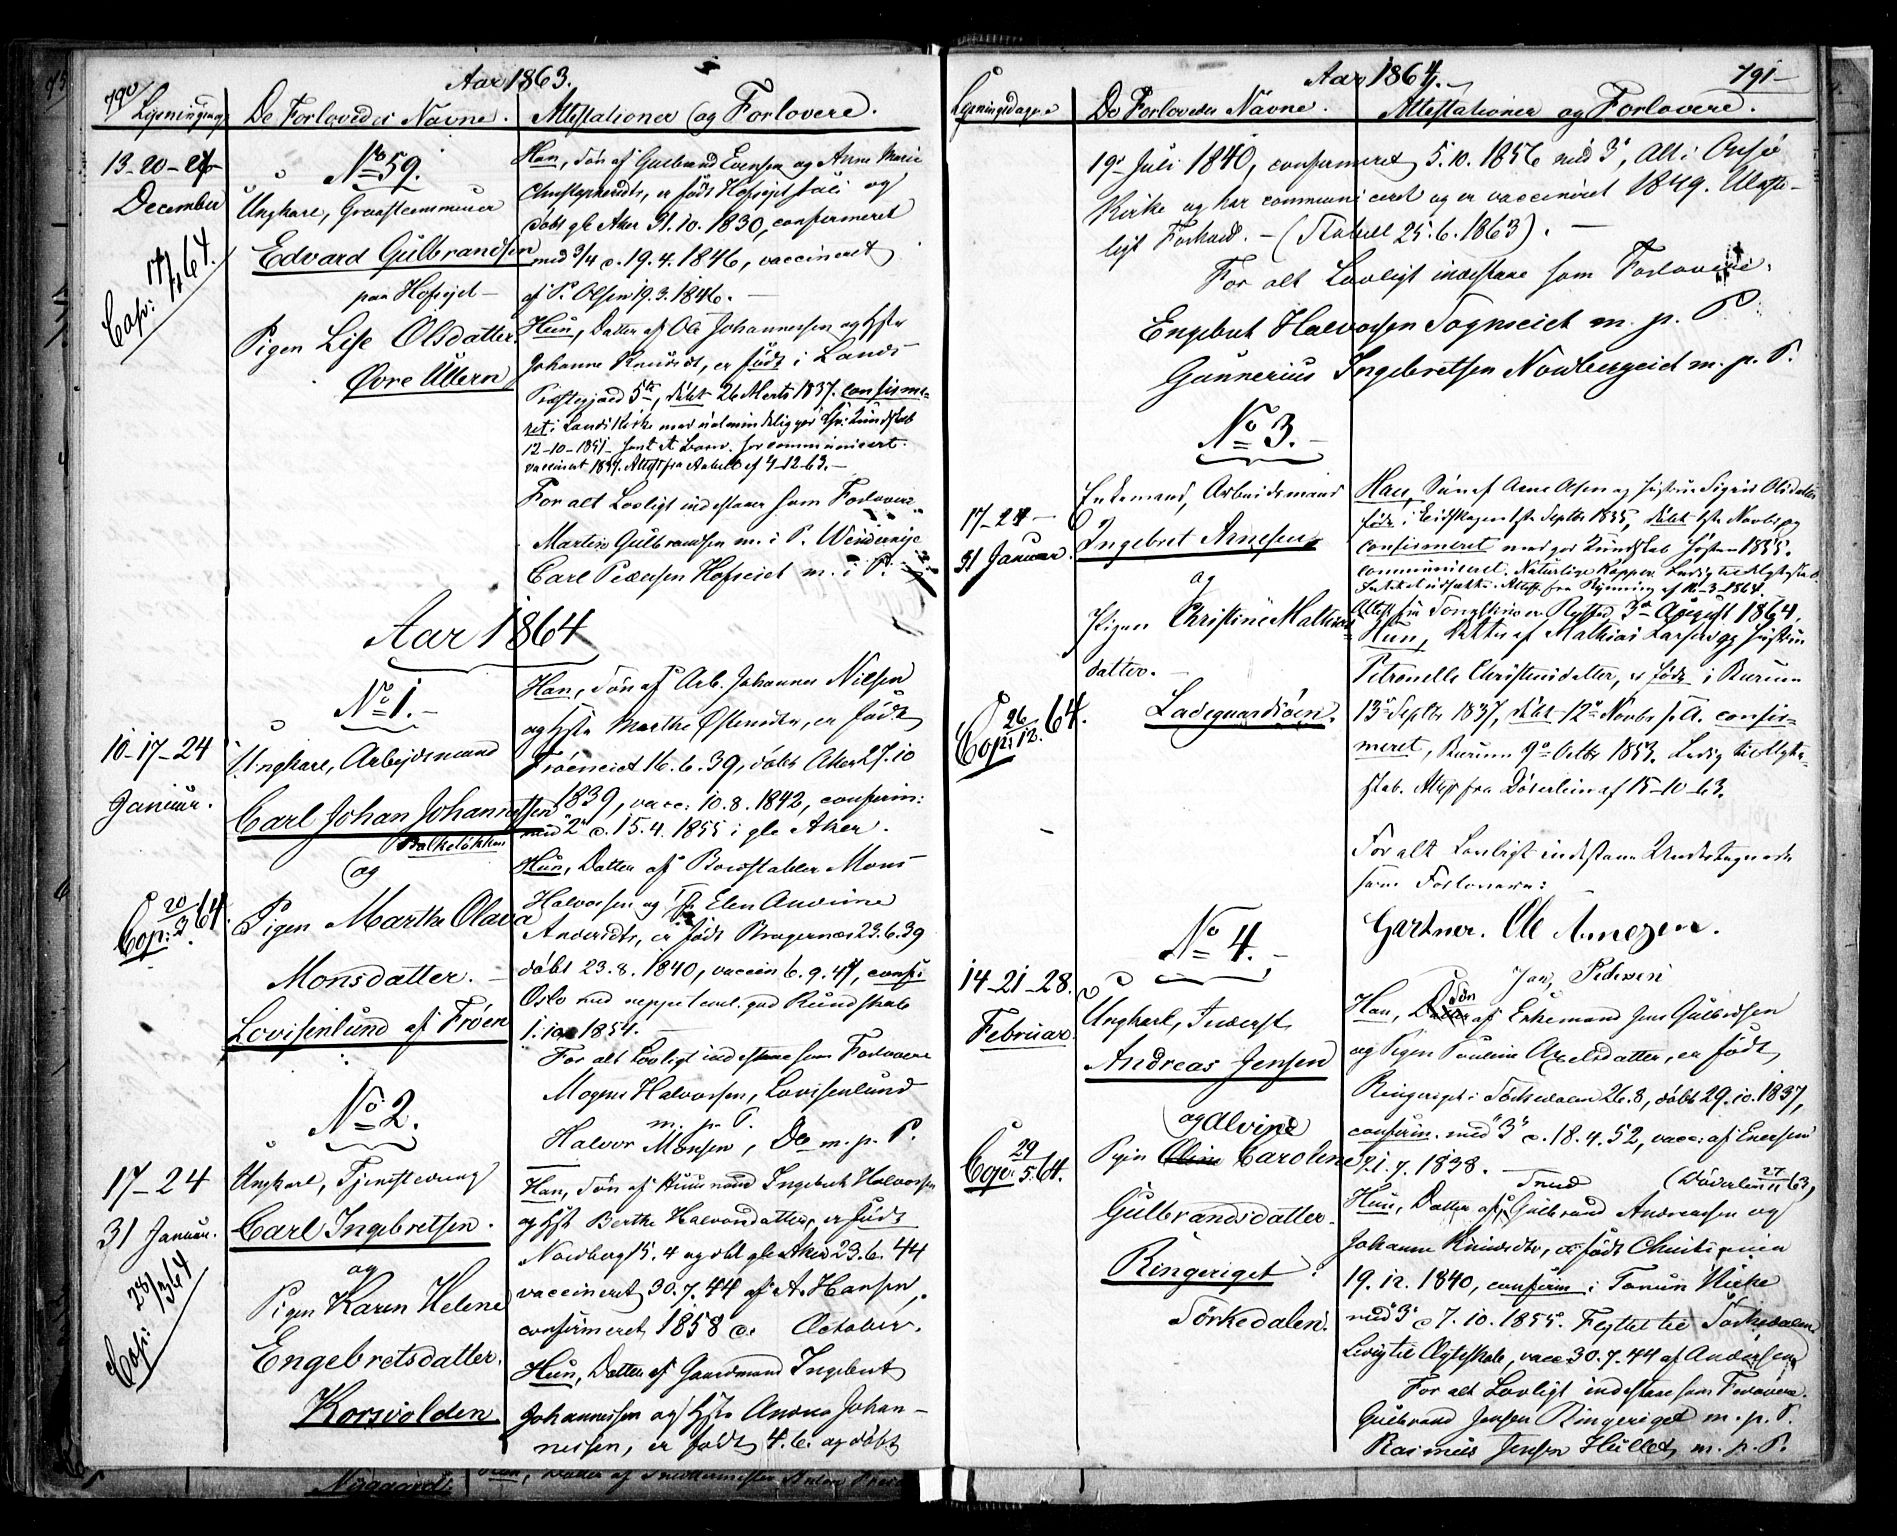 790
Aar 1863.
De Forlovedes Navne.
Attestationer og Forlovere.
13-20-
December
Cop: 64.
No 59.
Ungkarl,
Edvard Gulbrandsen
paa Hofsejet
Pigen Lise Olsdatter
Øvre Ullern
Han, Søn af Gulbrand Evensen og Anne Marie
er født Hofsejet og
døbt gle Aker 31.10.1830, confirmeret
19.4.1846, vaccineret
af P. Olsen 19.3.1846.
Hun, Datter af Ole Johannessen og Hstr
Johanne er født i Lands
Præstegjæld døbt 26 Marts 1837. confirme-
ret i Lands Kirke med
12-10-1851
vaccineret af 4-12-63.
For alt Lovligt indestaaer som Forlovere
Martin Gulbrandsen m. i P.
Carl Pedersen Hofseiet m. i P.
Aar 1864
10-17-24
Januar.
Cop: 20/3 64.
No 1.
Ungkarl, Arbejdsmand
Carl Johan Johannessen
Balkeløkken
og
Pigen Marthe Olava
Monsdatter.
Lovisenlund af Frøen
Han, Søn af Arb. Johannes Nilsen
og Hstr Marthe er født
Frøeneiet 16.6.39, døbt Aker 27.10
1839, vacc: 10.8.1842, confirm:
med "2" c. 15.4.1855 i gle Aker.
Hun, Datter af Mons
Halvorsen og Elen Andrine
Andersdtr, er født Bragernæs 23.6.39
døbt 23.8.1840, confi
Oslo med god Kundskab
1854.
For alt Lovligt indestaae som Forlovere
Mogens Halvorsen, Lovisenlund
m. p. P.
Halvor Monsen, Do m. p. P.
17-24
31 Januar.
Cop: 28/3 64
No 2.
Ungkarl, Tjenstedreng
Carl Ingebretsen.
og
Pigen Karen Helene
Engebretsdatter.
Korsvolden
Han, Søn af Huusmand Ingebret Halvorsen
og Hst Berthe Halvorsdatter, er født
Nordberg 15.4 og døbt gle Aker 23.6.44
vaccineret 30.7.44 af A. Hansen,
confirmeret 1858 c. October.
Hun, Datter af Gaardmand Ingebret
Johannessen og Hstr Johan-
nessen, er født 4.6. og døbt
Hun, Datter af
Aar 1864.
791
Lysningsdagene
De Forlovedes Navne.
Attestationer og Forlovere.
19de Juli 1840, confirmeret 5.10.1856 med 3, Alt i Oslo
Kirke og har communiceret og er vaccineret 1849. Ulaste-
ligt Forhold. - (Tabell 25.6.1863).
For alt Lovligt indestaae som Forlovere:
Engebret Halvorsen Sognseiet m. p. P.
Gunnerius Ingebretsen Nordbergeiet m. p. P.
No 3.
17-24-
31 Januar.
Cop: 26/12. 64.
Enkemand, Arbeidsmand
Ingebret Arnesen
og
Pigen Christine Mathias
datter.
Ladegaardsøen.
Han, Søn af Arne Olsen og Hustru Sigrid Olsdatter
født i Eidskogen 1ste Septbr 1835, døbt 1ste Novbr, og
confirmeret med god Kundskab Høsten 1855.
communiceret. Naturlige Kopper. Ledig til Ægteskab.
af 14-3-1864.
3die August 1864.
Hun, Datter af Mathias Larsen og Hustru
Petronelle Christensdatter, er født i Bærum
13de Septbr 1837, døbt 12te Novbr s. A. confir-
meret, Bærum 9de Octbr 1853. Ledig til Ægte-
skab. Attest fra Døderlein af 15-10-63.
For alt Lovligt indestaae Undertegnede
som Forlovere:
Gartner. Ole Arnezen.
Jan, Pedersen
No 4.
14-21-28.
Februar.
Cop: 29/5. 64.
Ungkarl, Inderst,
Andreas Jensen
og Alvine
Pigen Caroline
Gulbrandsdatter.
Ringeriget
Sørkedalen.
Han, Søn af Enkemand Jens Gulbrandsen
og Pigen Pauline Axelsdatter, er født
Ringeriget i Sørkedalen 26.8, døbt 29.10.1837,
confirm. med "3" c. 18.4.52, vacc: af Enersen
21.7.1838.
(Døderlein 27/11 63)
Hun, Datter af Gulbrand Andreassen og
Johanne Knudsdtr, er født Christiania
19.12.1840, confirm i Tanum Kirke
med "3" c 7.10.1855. Flyttet til Sørkedalen
Ledig til Ægteskab, vacc 30.7.44 af Andersen
For alt Lovligt indestaae som Forlovere.
Gulbrand Jensen Ringeriget m. p. P.
Rasmus Jensen Hullet m. p. P.